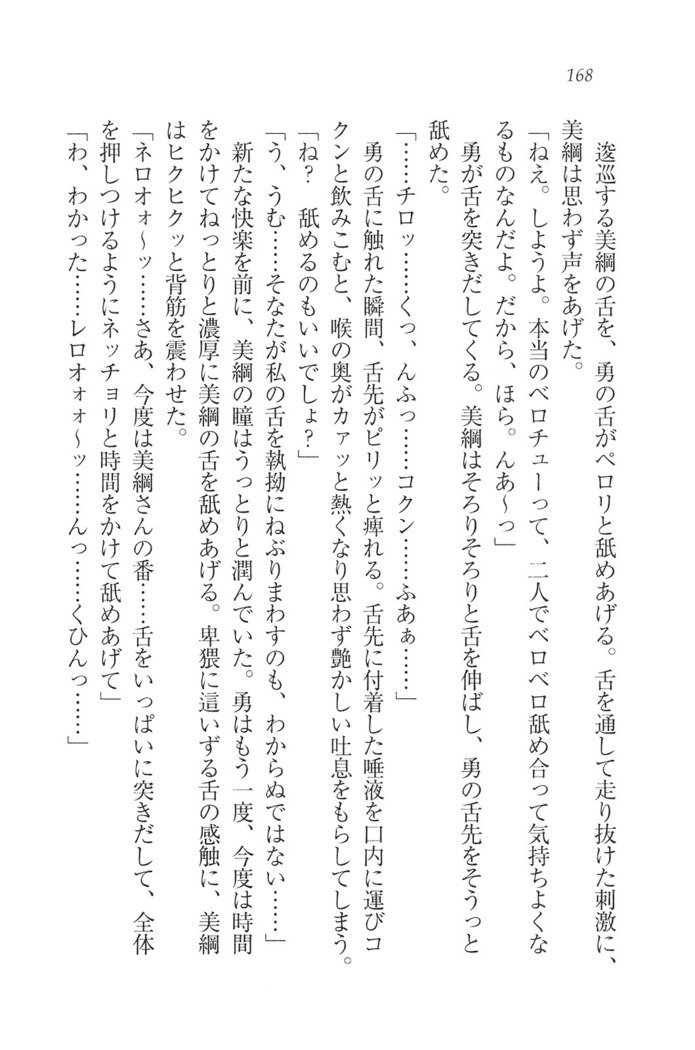 168
逡巡する美綱の舌を、勇の舌がペロリと舐めあげる。舌を通して走り抜けた刺激に、
美綱は思わず声をあげた。
「ねえ。しようよ。本当のベロチューって、二人でベロベロ舐め合って気持ちよくな
るものなんだよ。だから、ほら。んあ〜っ」
勇が舌を突きだしてくる。美綱はそろりそろりと舌を伸ばし、勇の舌先をそうっと
舐めた。
「……チロッ……くっ、んふっ……コクン……ふあぁ……」
勇の舌に触れた瞬間、舌先がピリッと痺れる。舌先に付着した唾液を口内に運びコ
クンと飲みこむと、喉の奥がカァッと熱くなり思わず艶かしい吐息をもらしてしまう。
「ね？　舐めるのもいいでしょ？」
「う、うむ……そなたが私の舌を執拗にねぶりまわすのも、わからぬではない……」
新たな快楽を前に、美綱の瞳はうっとりと潤んでいた。勇はもう一度、今度は時間
をかけてねっとりと濃厚に美綱の舌を舐めあげる。卑猥に這いずる舌の感触に、美綱
はヒクヒクッと背筋を震わせた。
「ネロオォ〜ッ……さあ、今度は美綱さんの番……舌をいっぱいに突きだして、全体
を押しつけるようにネッチョリと時間をかけて舐めあげて」
「わ、わかった……レロオォォ〜ッ……んっ……くひんっ……」